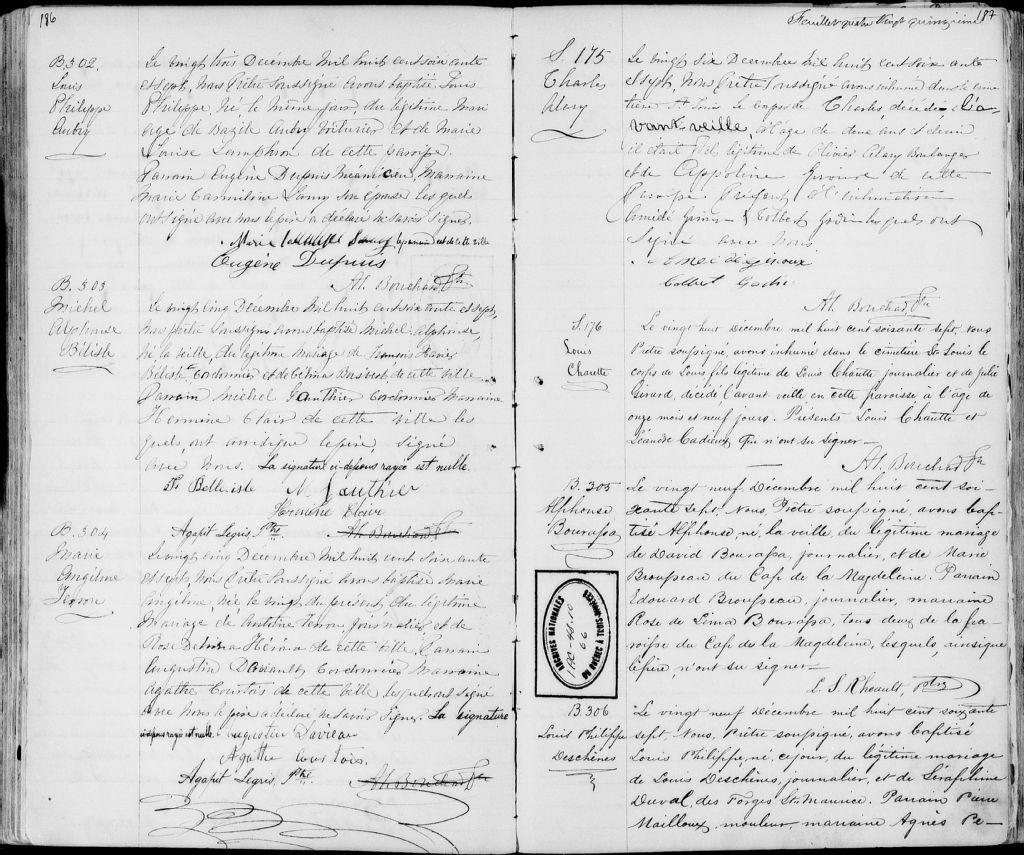 186
B. 302.
Louis
Philippe
Aubry
Le vingt trois Décembre mil huit cent soix ante
et sept, Nous Prêtre Soussigné avons baptisé Louis
Philippe, né le même jour, du légitime Mari
age de Bazile Aubry Voiturier et de Marie
Louise Lamphron de cette paroisse.
Parrain Eugène Dupuis Mécanicien, Marraine
Marie Carmiline Lamy son épouse les quels
ont signé avec nous le père a déclaré ne savoir signer.
Marie le parrain est de cette ville
Eugène Dupuis
At. Bouchard Ptre
B. 303
Michel
Alphonse
Bélisle
Le vingt cinq Décembre mil huit cent soix ante et sept,
Nous prêtre soussigné avons baptisé Michel Alphonse,
né la veille, du légitime mariage de François Xavier
Bélisle Cordonnier et de Célina de cette ville
Parrain Michel Gauthier Cordonnier Marraine
Hermine Clair de cette ville les
quels, ont ainsi que le père, signé
avec nous. La signature ci-dessous rayée est nulle.
Belleisle M. Gauthier
Hermine Claire
Agapit Legris, Ptre. At. Bouchard Ptre
B. 304
Marie
Angéline
Veron
Le vingt cinq Décembre mil huit cent soix ante
et sept, Nous Prêtre Soussigné avons baptisé Marie
Angélina née le vingt du présent, du légitime
Mariage de Antoine Veron journalier et de
Rose de cette ville, Parrain
Augustin Daviault Cordonnier Marraine
Agathe Courtois de cette ville lesquels ont signé
avec nous le père a déclaré ne savoir signer. La signature
ci-dessous rayée est nulle. Augustin Daviau
Agathe Courtois.
Agapit Legris, Ptre. At. Bouchard Ptre
Feuillet quatre Vingt quinzième 187
S. 175
Charles
Alary
Le vingt six Décembre mil huit cent soix ante
et sept, Nous Prêtre Soussigné avons inhumé dans le cime
tière St Louis le corps de Charles, décédé, l'a-
vant-veille, à l'age de deux ans et demi
il était fils légitime de Olivier Alary Boulanger
et de Appoline Giroux de cette
Paroisse Présents à l'inhumation
Amédé Giroux & Colbert Godin lesquels ont
Signé avec nous
Amédé Giroux
Colbert Godin
At. Bouchard Ptre
S. 176
Louis
Chaurette
Le vingt huit Décembre mil huit cent soixante sept, Nous
Prêtre soussigné, avons inhumé dans le cimetière St Louis le
corps de Louis fils légitime de Louis Chaurette journalier et de Julie
Girard, décédé l'avant veille en cette paroisse à l'âge de
onze mois et neuf jours. Présents Louis Chaurette et
Léandre Cadieux Qui n'ont su signer—
At. Bouchard Ptre
B. 305
Alphonse
Bourassa
Le vingt neuf Décembre mil huit cent soi-
xante sept, Nous, Prêtre soussigné, avons bap-
tisé Alphonse, né, la veille, du légitime mariage
de David Bourassa, journalier, et de Marie
Brousseau du Cap de la Magdeleine. Parrain
Edouard Brousseau, journalier, marraine
Rose de Lima Bourassa, tous deux de la pa-
roisse du Cap de la Magdeleine, lesquels, ainsique
le père, n'ont su signer—
L. S. Rheault, Ptre
ARCHIVES NATIONALES
DU QUÉBEC À TROIS-RIVIÈRES
B 306
Louis Philippe
Deschênes
Le vingt neuf Décembre mil huit cent soixante
sept, Nous, Prêtre soussigné, avons baptisé
Louis Philippe, né, ce jour, du légitime mariage
de Louis Deschênes, journalier, et de Séraphine
Duval, des Forges St Maurice. Parrain Pierre
Mailloux, mouleur, marraine Agnès Pe—